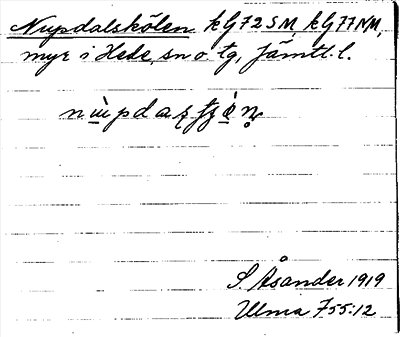 Nupdalskölen kG72SM, kG77NM,
myr i Hede sn o. tg, Jämtl. l.
S. Åsander 1919
Ulma 755:12